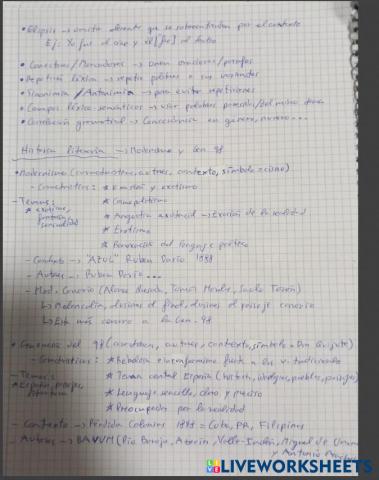 • Elipsis → omitir elemento que se sobreentiende por el contexto
Ej: Yo fui al cine y él [fue] al teatro
• Conectores/Marcadores → unen oraciones/párrafos
• Repetición léxica → repetir palabras o sus variantes
• Sinonimia / Antonimia → para evitar repeticiones
• Campos léxico-semánticos → usar palabras del mismo tema
• Correlación gramatical → Concordancia en género, número...
Historia literaria → Modernismo y Gen. 98
• Modernismo (características, autores, contexto, símbolo = cisne)
- Características: * Evasión y exotismo
- Temas: * Cosmopolitismo
* exotismo,
* Angustia existencial → Evasión de la realidad
* Erotismo
* Renovación del lenguaje poético
- Contexto → "AZUL" Rubén Darío 1888
- Autores → Rubén Darío...
- Mod. Canario (Alonso Quesada, Tomás Morales, Saulo Torón)
↳ Melancolía, alusiones al paisaje canario
↳ Está más cercano a la Gen. 98
• Generación del 98 (características, autores, contexto, símbolo = Don Quijote)
- Características: * Rebeldía e inconformismo frente a los v. tradicionales
- Temas: * Tema central España (historia, ideologías, pueblos, paisajes)
* España, paisajes,
* Lenguaje sencillo, claro y preciso
* Preocupados por la realidad
- Contexto → Pérdida Colonias 1898 = Cuba, PR, Filipinas
- Autores → BAVUM (Pío Baroja, Azorín, Valle-Inclán, Miguel de Unamuno
y Antonio Machado
LIVEWORKSHEETS